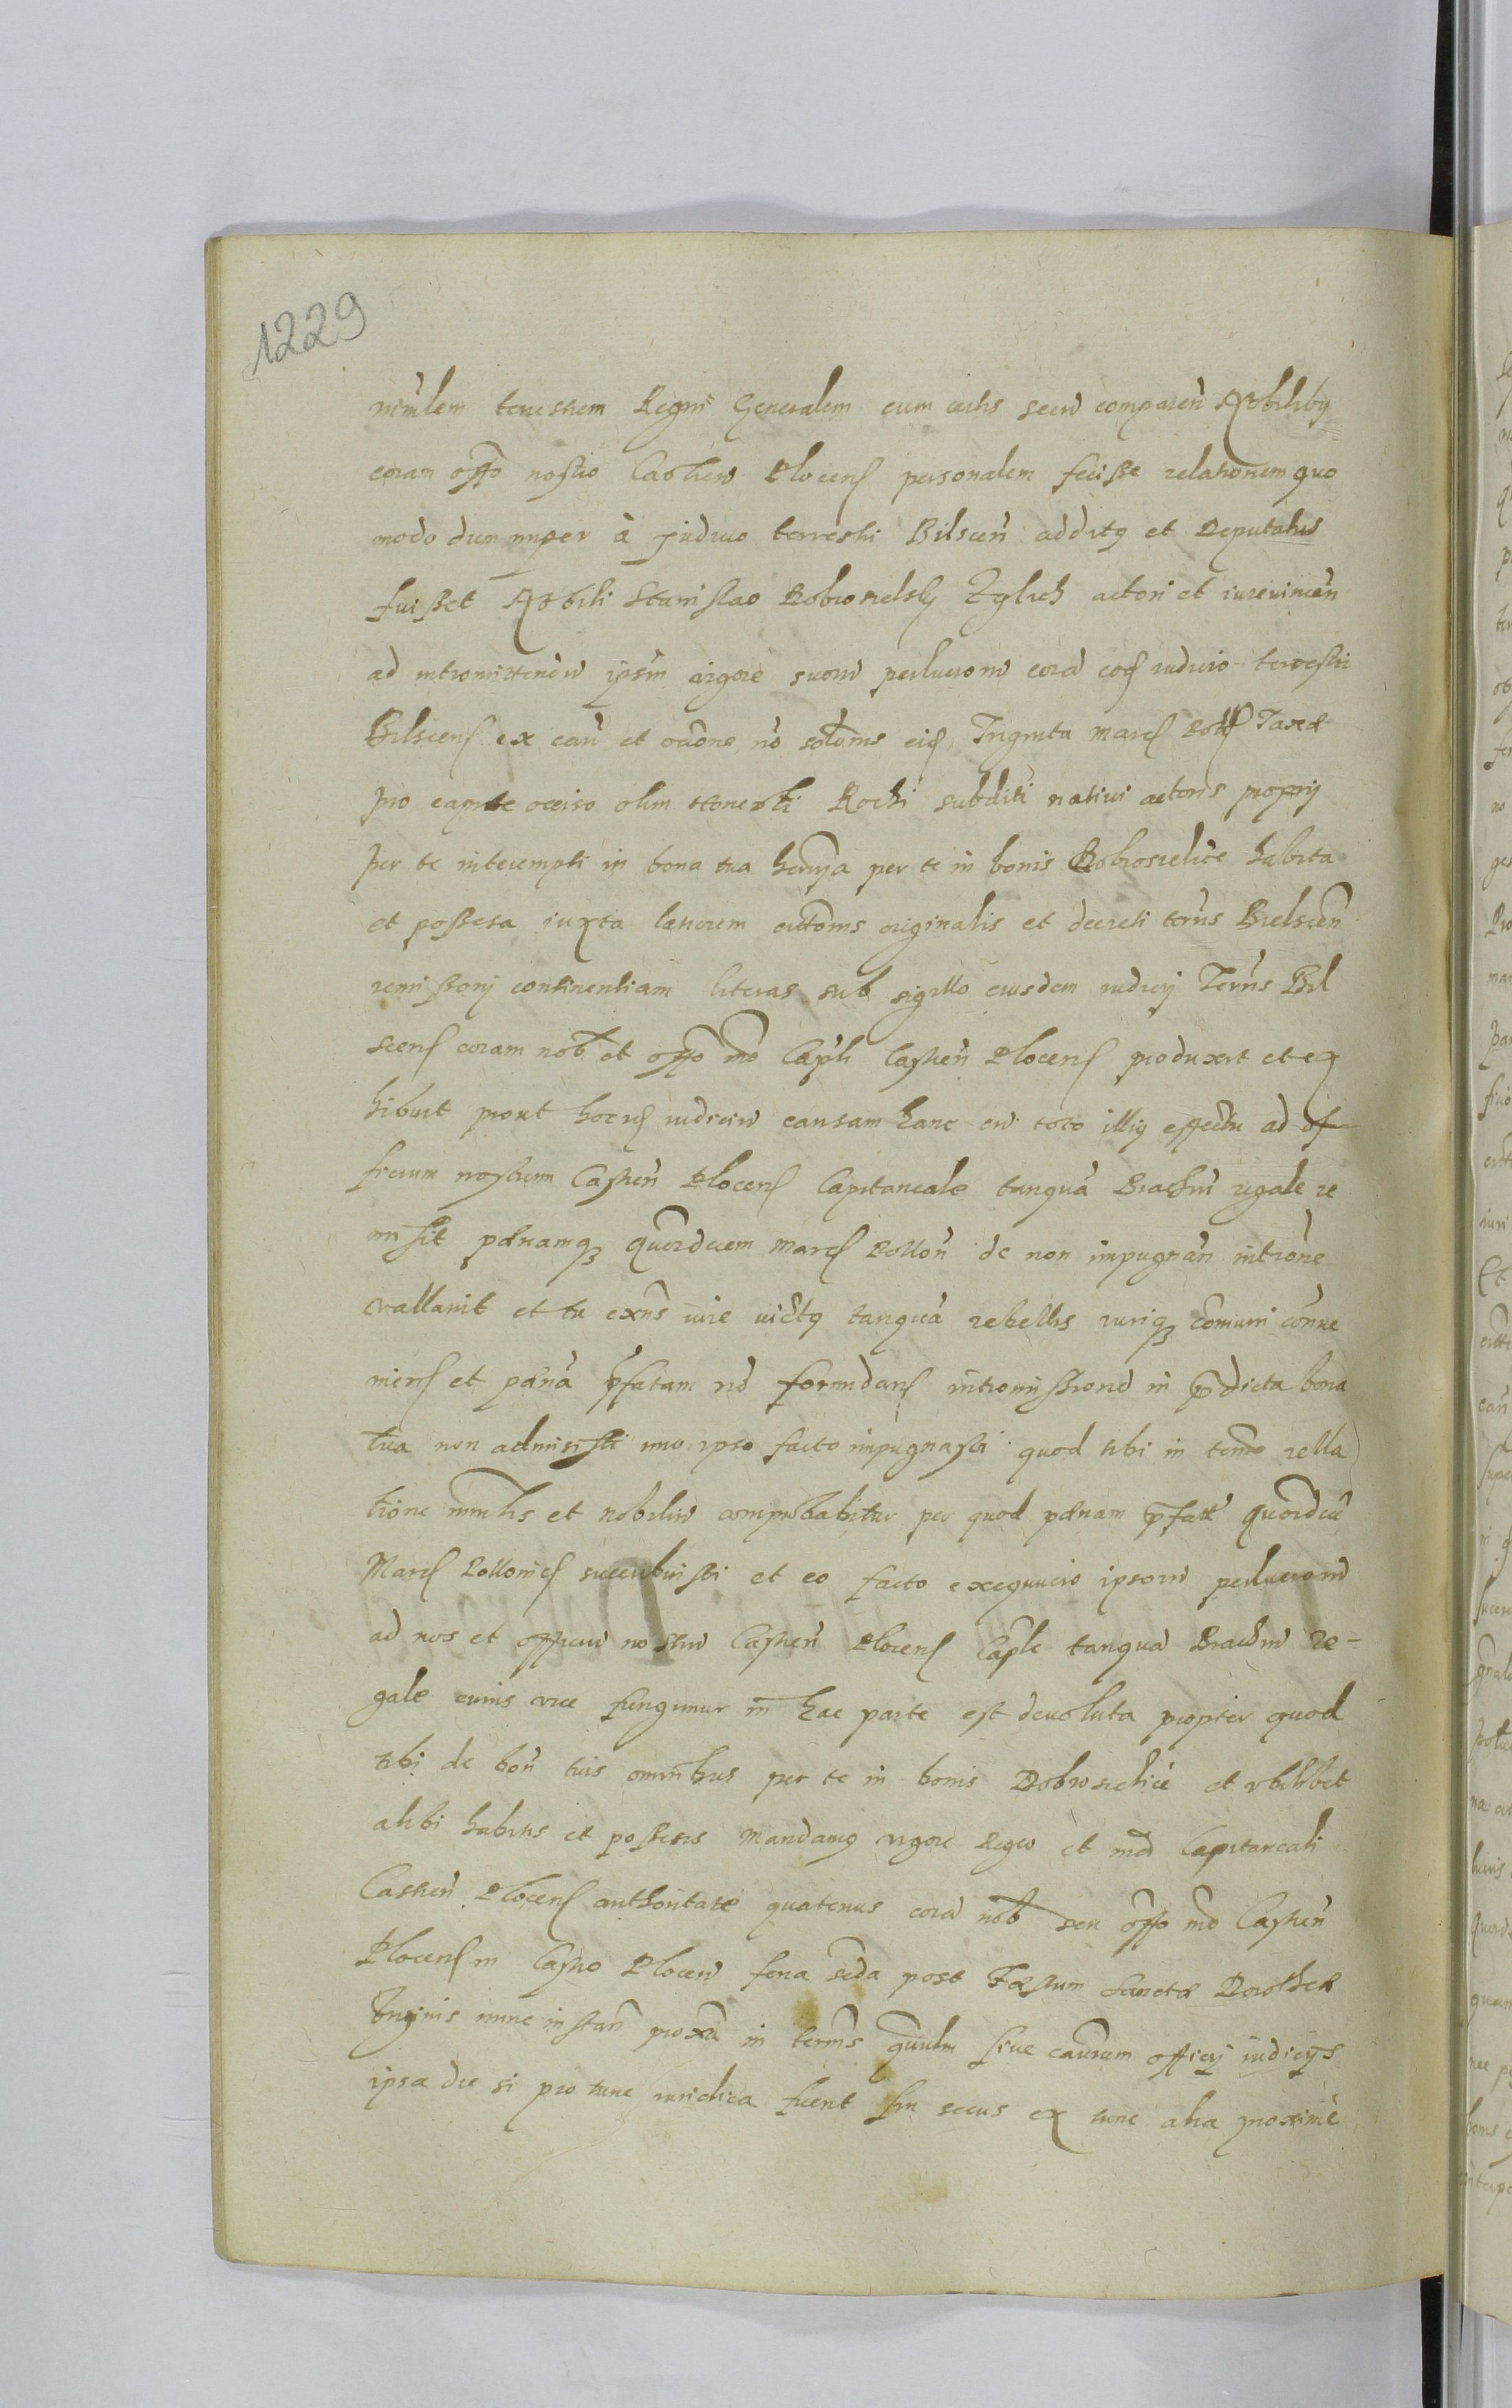 1229
nimlem terrestrem Regni Generalem cum certis secu comparen Nobilibus
coram offo nostro Castren Plocens personalem fecisse relationem quo
modo dum nuper à judicio terrestri Bilscen additus et Deputatus
fuisset Nobili Stanislao Dobrosielsky Zglich actori et iurevincen
ad intromittendu ipsum vigore suoru perlucroru cora eod iudicio terrestri
Bilscens ex cau et occone no solutionis eid Triginta Marc Poll Taxæ
pro capite occiso olim Honesti Rochi subditi nativi actoris proprij
per te interempti in bona tua herria per te in bonis Dobrosielice habita
et possessa iuxta tenorem cittonis originalis et decreti terris Bielscen
remissorij continentiam literas sub sigillo eiusdem iudicij Terris Bil
scens coram nob et offo nro Capli Castren Plocens produxit et ex
hibuit prout hocce iudiciu causam hanc cu toto illius effectu ad of
ficium nostrum Castren Plocens Capitaneale tanqua Brachiu regale re
misit pænamq quordecem Marc Pollon de non impugnan introne
vallavit et tu exns iure victus tanqua rebellis iuriq comuni conve
niens et pæna pfatam no formidans intromissione in pdicta bona
tua non admisisti imo ipso facto impugnasti quod tibi in termo rella
tione mnrlis et nobiliu comprobabitur per quod pænam pfatt quordece
Marc Pollonics succubuisti et eo facto exequucio ipsoru perlucroru
ad nos et officiu nostru Castren Plocens Caple tanqua Brachiu Re-
gale cuius vice fungimur in hac parte est devoluta propter quod
tibi de bon tuis omnibus per te in bonis Dobrosielice et ubilibet
alibi habitis et possessis Mandamus vigore Regio et nra Capitaneali
Castren Plocens authoritate quatenus cora nob seu offo nro Castren
Plocens in Castro Plocen feria scda post Fæstum Sanctæ Dorotheæ
Virginis nunc instan proxa in termis qurulm sive caurum officij iudicijs
ipsa die si pro tunc iuridica fuerit sin secus ex tunc alia proxime